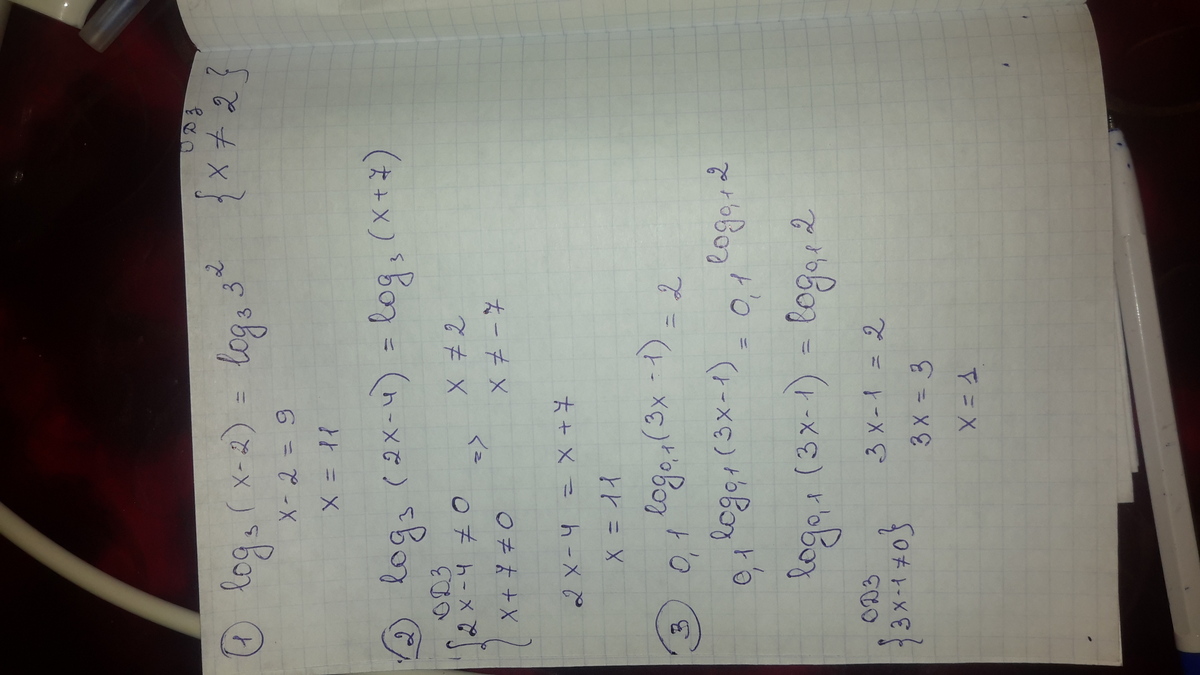 ① log₃(x-2) = log₃3² {x ≠ 2} ОДЗ
x-2=9
x=11
② log₃(2x-4) = log₃(x+7)
ОДЗ
{2x-4 ≠ 0 => x ≠ 2
{x+7 ≠ 0 x ≠ -7
2x-4 = x+7
x = 11
③ 0,1 log₀,₁(3x-1) = 2
0,1 log₀,₁(3x-1) = 0,1 log₀,₁2
log₀,₁(3x-1) = log₀,₁2
ОДЗ 3x-1 = 2
{3x-1 ≠ 0} 3x = 3
x = 1